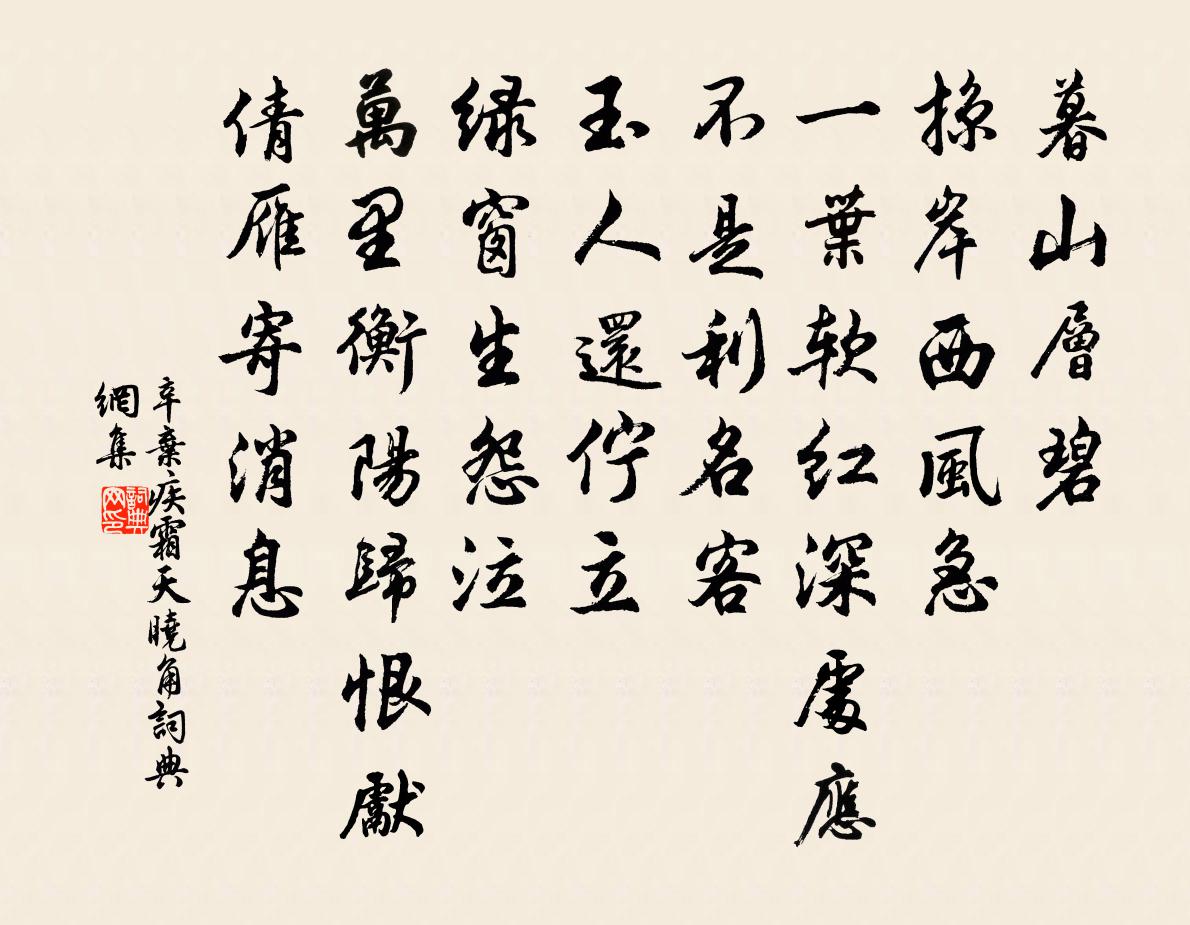 暮山層碧
掠岸西風急
一葉軟紅深處應
不是利名客
玉人還佇立
绿窗生怨泣
萬里衡陽歸恨獻
倩雁寄消息
辛棄疾霜天曉角詞典
網集
詞典網印